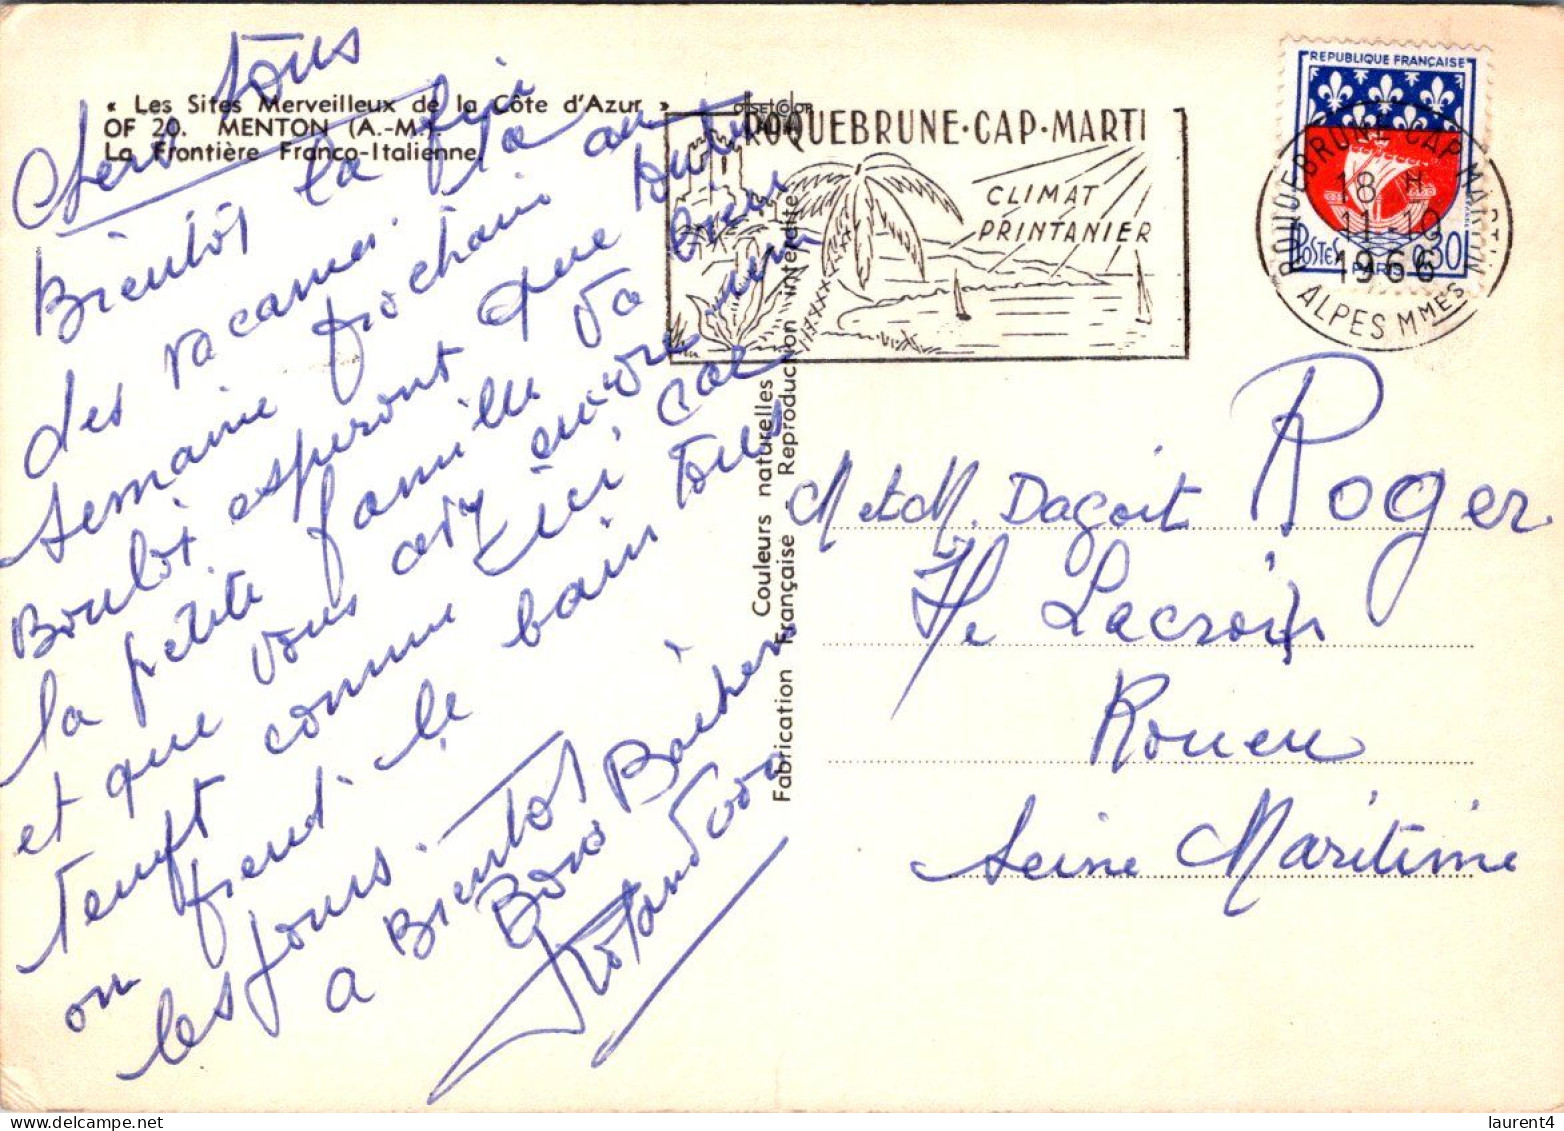 « Les Sites Merveilleux de la Côte d'Azur »
OF 20. MENTON (A.-M.)
La Frontière Franco-Italienne
Chers tous
Bientôt la fin
des vacances. la
semaine prochaine au
Boulot. esperont que toute
la petite famille va bien
et que vous avez encore
temps comme ici, car
on prend le bain tous
les jours.
A Bientôt
Bons Baisers
ROQUEBRUNE-CAP-MARTI
CLIMAT
PRINTANIER
REPUBLIQUE FRANÇAISE
POSTES 0,30
PARIS
ROQUEBRUNE CAP MARTIN
18 H
11-10
1966
ALPES MMES
Couleurs naturelles
Fabrication Française - Reproduction interdite
M et M. Dagoit Roger
Lacroix
Rouen
Seine Maritime
laurent4